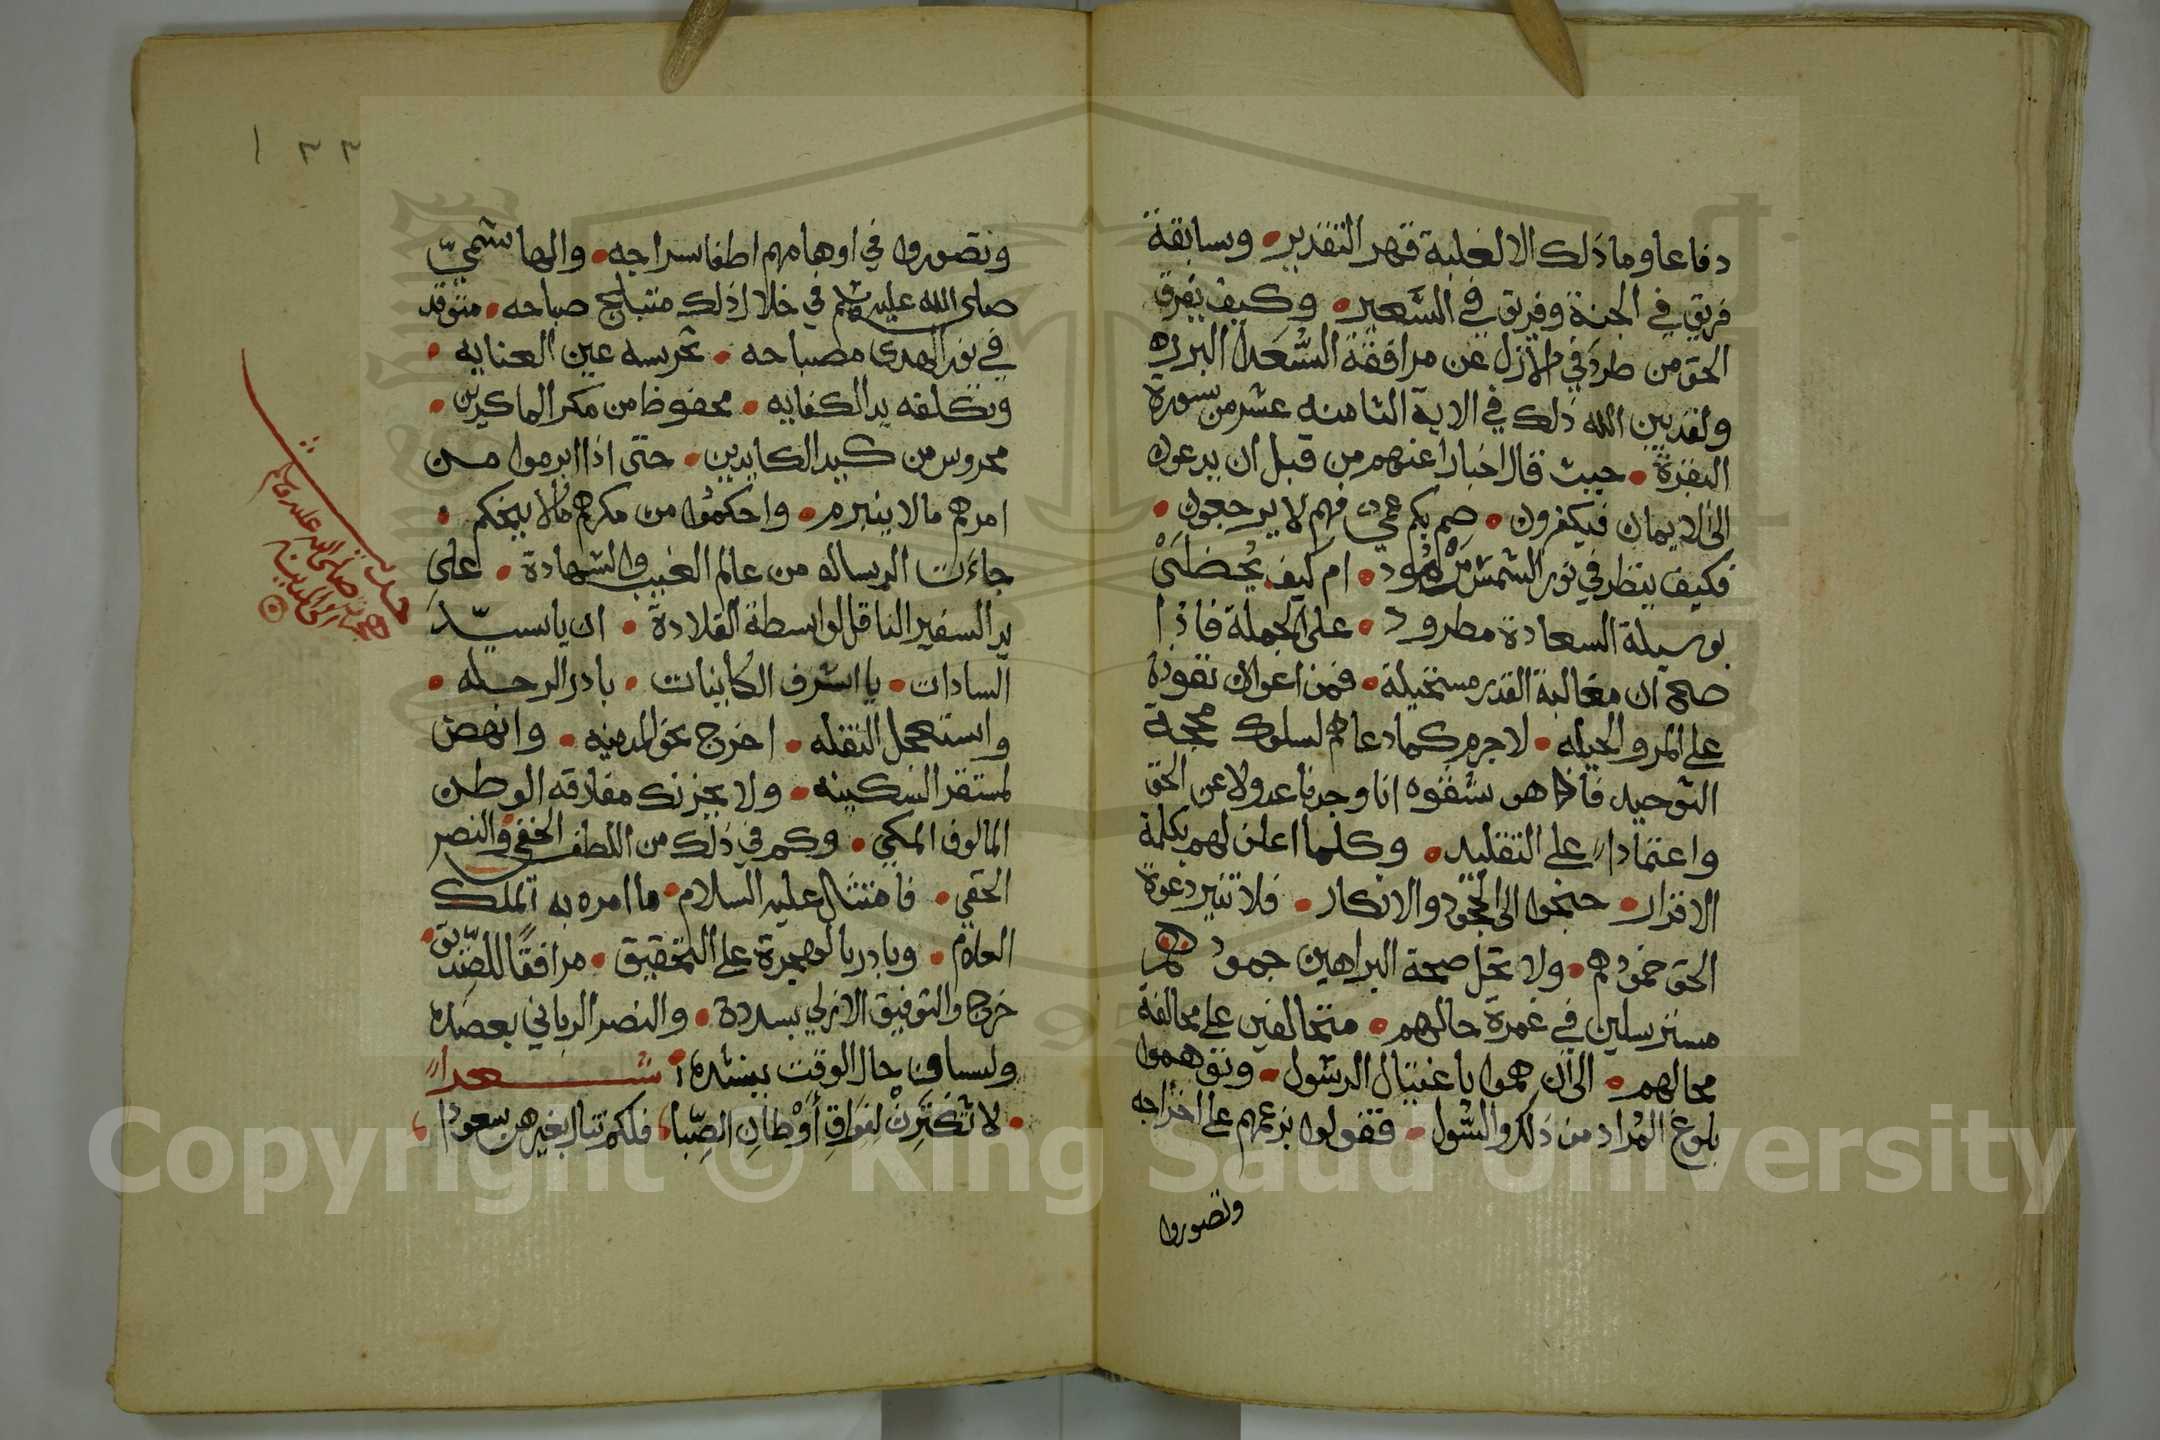 دفاعا وما ذلك الا لغلبة قهر التقدير • وسابقة
فريق في الجنة وفريق في السَّعير • وكيف يفرق
الحق من طرد في الأزل عن مرافقة السُّعَدا البرره
ولقد بين الله ذلك في الاية الثامنه عشر من سورة
البقرة • حيث قال اخبارا عنهم من قبل ان يدعوا
الى الايمان فيكفرون • صم بكم عمي فهم لا يرجعون •
فكيف ينظر في نور الشمس مَنْ • ام كيف يُحظَىْ
بوسيلة السعادة مطرود • على الجملة فاذا
صح ان مغالبة القدر مستحيلة • فمن اعوال نفوذه
على المرو الحيله • لا جرم كما دعاهم لسلوك محجة
التوحيد فاذا هو شفوه انا وجدنا عدولا عن الحق
واعتمادا على التقليد • وكلما اعلن لهم بكلمة
الاقرار • جنحوا الى الجحود والانكار • فلا تنير دعوة
الحق خمودهم • ولا تحل صحة البراهين جمودهم
مسترسلين في غمرة حالهم • متحالفين على مخالفة
محالهم • الى ان هموا باغتيال الرسول • وتوهموا
بلوغ المُراد من ذلك والسُّول • فقفلوا بزعمهم على اخراجه
وتصوروا
١٣٣
وتصوروا في اوهامهم اطفا سراجه • والهاشميّ
صلى الله عليه وسلم في خلال ذلك متبلج صباحه • متوقد
في نور الهدى مصباحه • تحرسه عين العنايه •
وتكلفه يد الكفايه • محفوظا من مكر الماكرين •
محروس من كيد الكايدين • حتى اذا ابرموا من
امرهم مالا ينبرم • واحكموا من مكرهم مالا ينحكم •
جاءت الرساله من عالم الغيب والشهادة • على
يد السفير الناقل لواسطة القلادة • ان يا سيّد
السادات • يا اشرف الكاينات • بادر الرحيله •
واستعجل النقله • اخرج نحو المدينه • وانهض
لمستقر السكينه • ولا يحزنك مفارقه الوطن
المالوف المكي • وكم في ذلك من اللطف الخفي والنصر
الحقي • فامتثال عليه السلام • ما امره به الملك
العلام • وبادر بالهجرة على التحقيق • مرافقًا للصّديق •
خرج والتوفيق الازلي يسدده • والنصر الرباني يعضده
ولسان حال الوقت ينشده • شعرا
• لا تكترِنْ لفراقِ أوْطانِ الصِّبا فلكم تنال بغيرهن سعودا